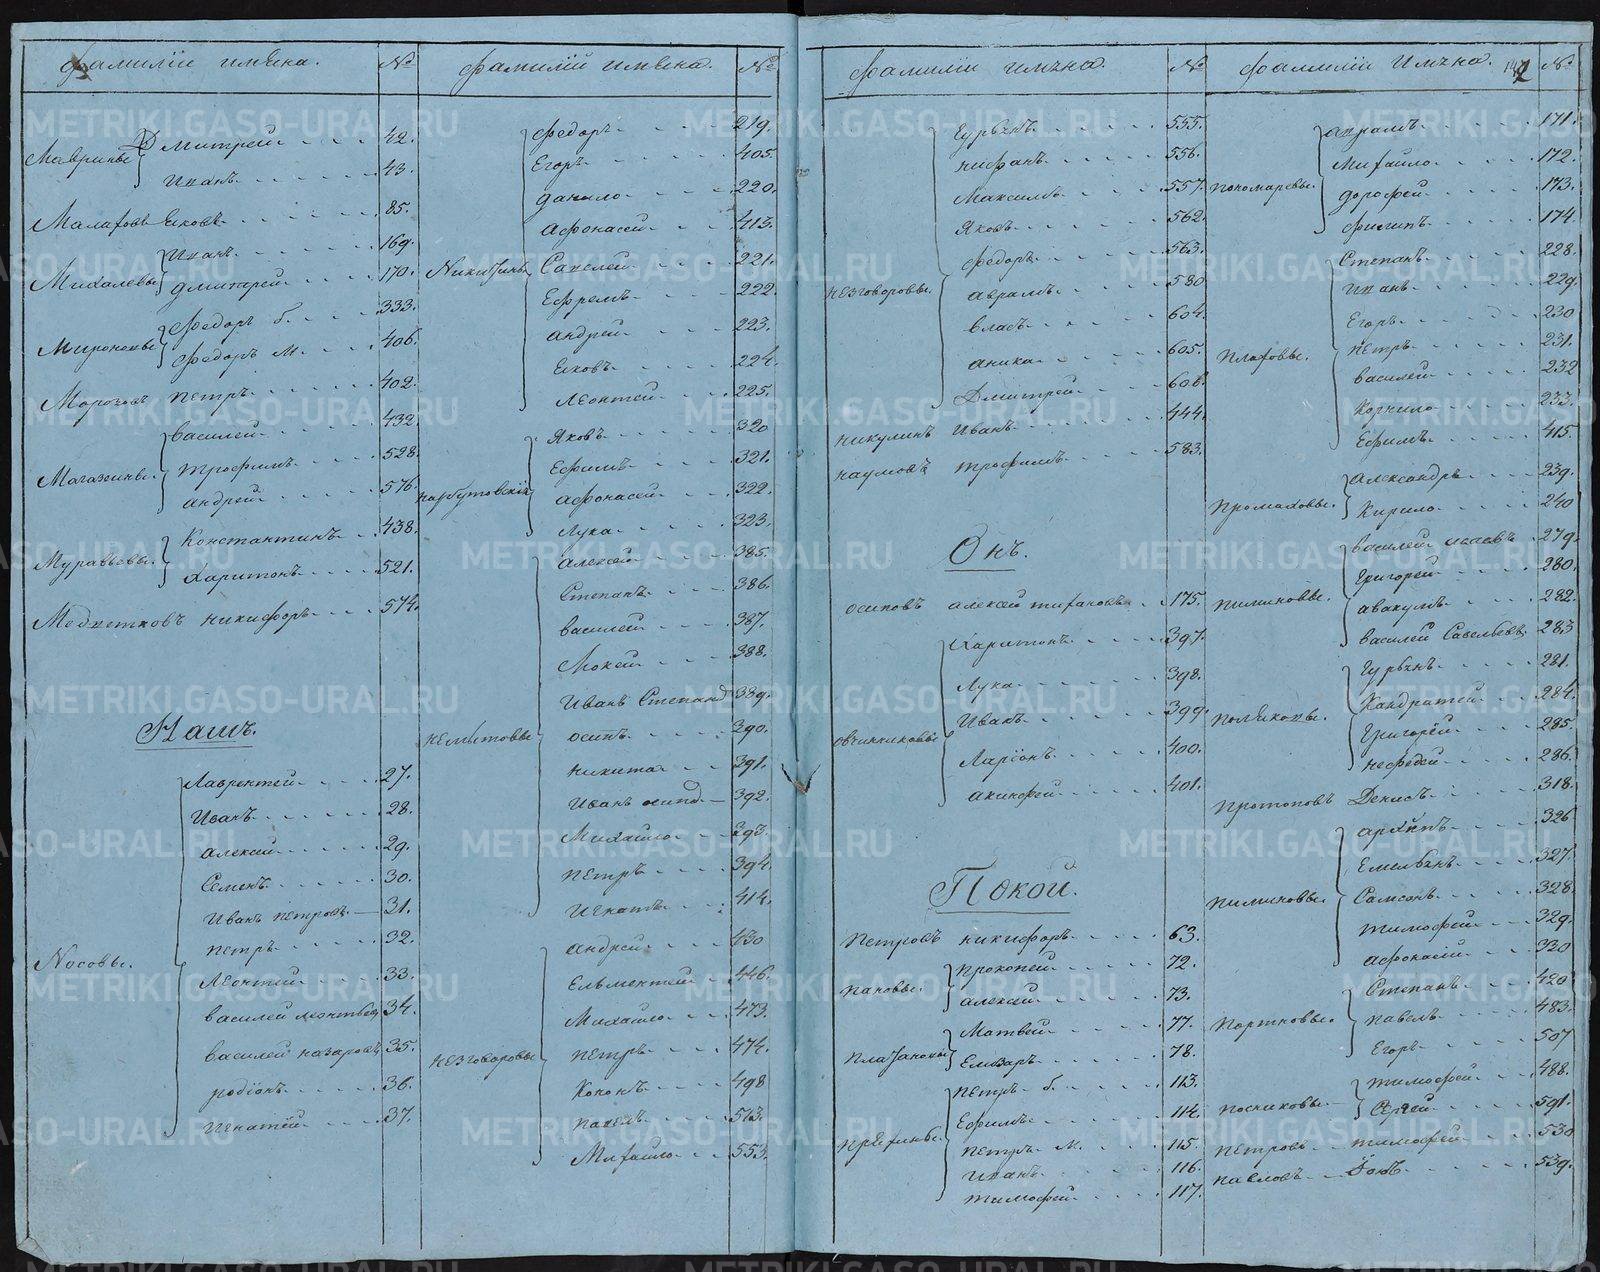 Фамилiи имена. №
Мавринъ Дмитрей 42.
Иванъ 43.
Малаховъ Яковъ 85.
Михалевы Иванъ 169.
Дмитрей 170.
Мироновы Федоръ б. 333.
Федоръ м. 406.
Морозовъ Петръ 402.
Магазинны Василей 432.
Трофимъ 528.
Андрей 576.
Муравьевы Константинъ 438.
Харитонъ 521.
Медветковъ Никифоръ 574.
Нашъ.
Носовы. Лаврентей 27.
Иванъ 28.
Алексей 29.
Семенъ 30.
Иванъ Петровъ 31.
Петръ 32.
Леонтей 33.
Василей 34.
Василей Назаровъ 35.
Родiонъ 36.
Игнатей 37.
Фамилiи имена. №
Федоръ 219.
Егоръ 405.
Данило 220.
Афонасей 413.
Никитины Савелей 221.
Ефремъ 222.
Андрей 223.
Яковъ 224.
Леонтей 225.
Яковъ 320
Ефимъ 321.
Афонасей 322.
Лука 323.
Алексей 385.
Степанъ 386.
Василей 387.
Мокей 388.
Иванъ 389.
Немытовы Осипъ 390.
Никита 391.
Иванъ 392.
Михайло 393.
Петръ 394.
Игнатъ 414.
Андрей 430
Ельментей 446.
Михайло 473.
Незговоровы Петръ 474.
Кононъ 498
Павелъ 513.
Михайло 553.
Фамилiи имена. №
Гурьянъ 555.
Нифанъ 556.
Максимъ 557.
Яковъ 562.
Федоръ 563.
Незговоровы. Аврамъ 580
Власъ 604.
Аника 605.
Дмитрей 606.
Никулинъ Иванъ 444.
Наумовъ Трофимъ 583.
Онъ.
Осиповъ Алексей 175.
Харитонъ 397.
Лука 398.
Иванъ 399.
Овчинниковы Ларiонъ 400.
Акинфей 401.
Покой.
Петровъ Никифоръ 63.
Пановы. Прокопей 72.
Алексей 73.
Платановы Матвей 77.
Елизаръ 78.
Петръ б. 113.
Ефимъ 114.
Петръ м. 115.
Иванъ 116.
Тимофей 117.
Фамилiи Имена. №
Аврамъ 171.
Михайло 172.
Пономаревы. Дорофей 173.
Филипъ 174.
Степанъ 228.
Иванъ 229.
Егоръ 230
Плаховы. Петръ 231.
Василей 232
Корнило 233.
Ефимъ 415.
Промаховы. Александръ 239.
Кирило 240
Василей Исаевъ 279.
Григорей 280.
Пиминовы. Авакумъ 282.
Василей Савельевъ 283
Гурьянъ 281.
Поляковы. Кандратей 284.
Григорей 285.
Нефедей 286.
Протоповъ Денисъ 318.
Архипъ 326
Емельянъ 327.
Пиминовы. Самсонъ 328.
Тимофей 329.
Афонасiй 330
Степанъ 420
Портновы. Павелъ 483.
Егоръ 507
Посниковы Тимофей 488.
Сергей 591.
Петровъ Тимофей 530
Павловъ Фокъ 539.
METRIKI.GASO-URAL.RU